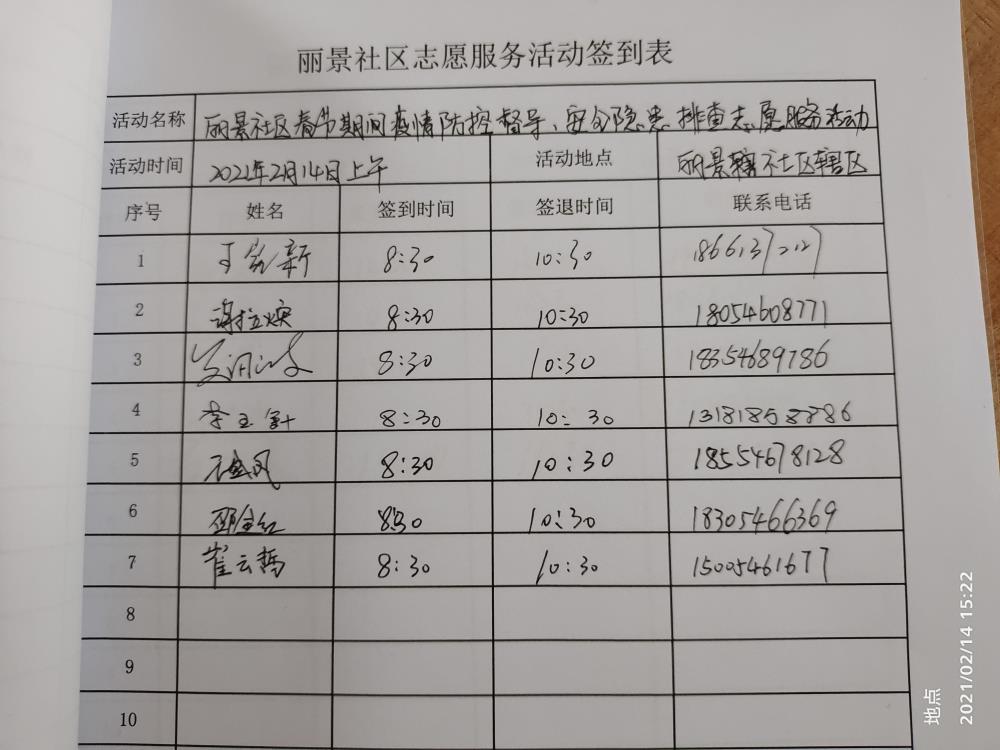 丽景社区志愿服务活动签到表
活动名称 丽景社区春节期间疫情防控督导、安全隐患排查志愿服务活动
活动时间 2022年2月14日上午 活动地点 丽景辖社区辖区
序号 姓名 签到时间 签退时间 联系电话
1 新 8:30 10:30
2 8:30 10:30 18054608771
3 8:30 10:30 18354689786
4 李玉 8:30 10:30 13181858886
5 凤 8:30 10:30 18554678128
6 邵金红 8:30 10:30 18305466369
7 崔云鹊 8:30 10:30 15005461677
8
9
10
地点
2021/02/14 15:22